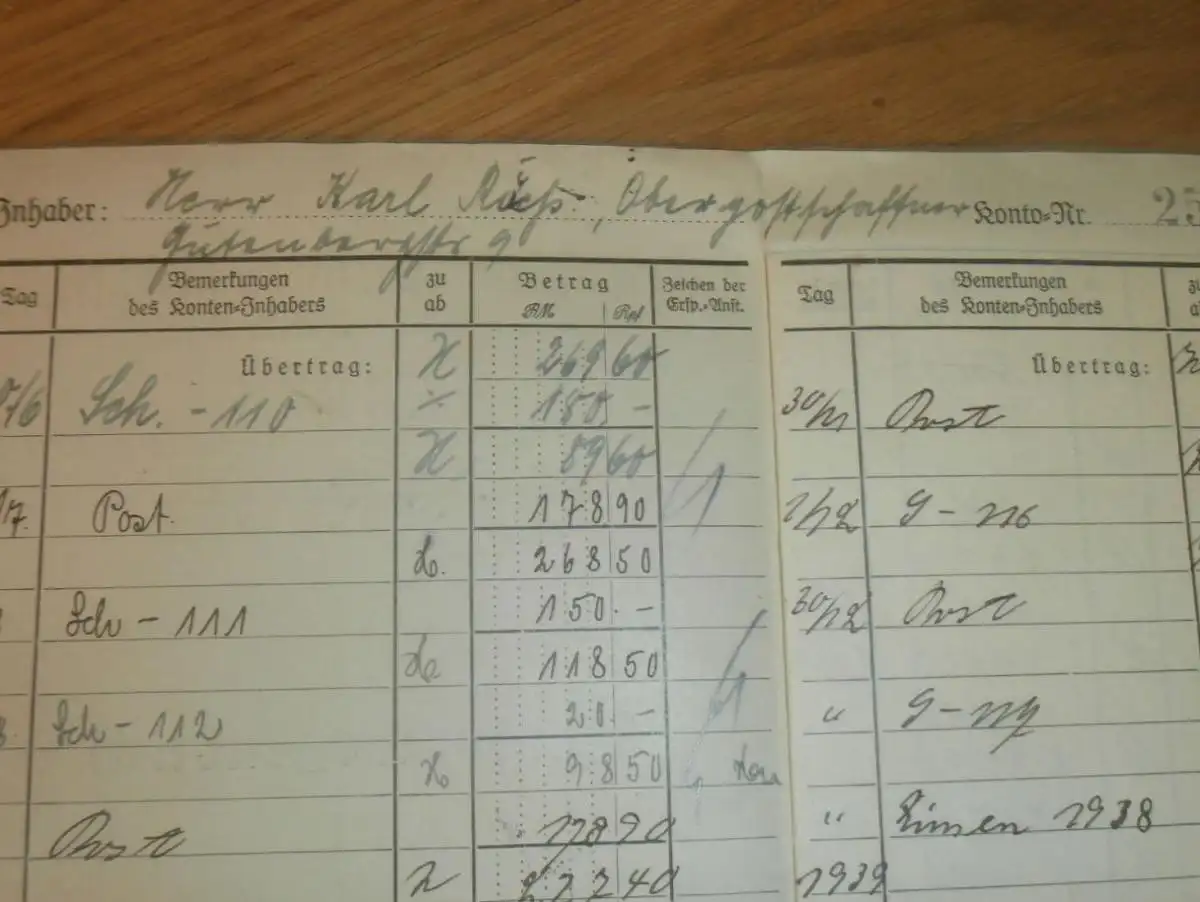 Inhaber: Herr Karl , Oberpostschaffner Konto-Nr. 25
Gutenbergstr 9
Tag Bemerkungen des Konten-Inhabers zu ab Betrag RM Rpf Zeichen der Ersp.-Anst.
Übertrag: H 269 60
7/6 Sch. - 110 ÷ 180 -
H 89 60
/7. Post. 178 90
H. 268 50
Sch - 111 150. -
H 118 50
Sch - 112 20. -
H 98 50
Post 178 90
H 277 40
Tag Bemerkungen des Konten-Inhabers zu a
Übertrag:
30/11 Post
2/12 G-116
30/12 Post
" G-117
" Zinsen 1938
1939